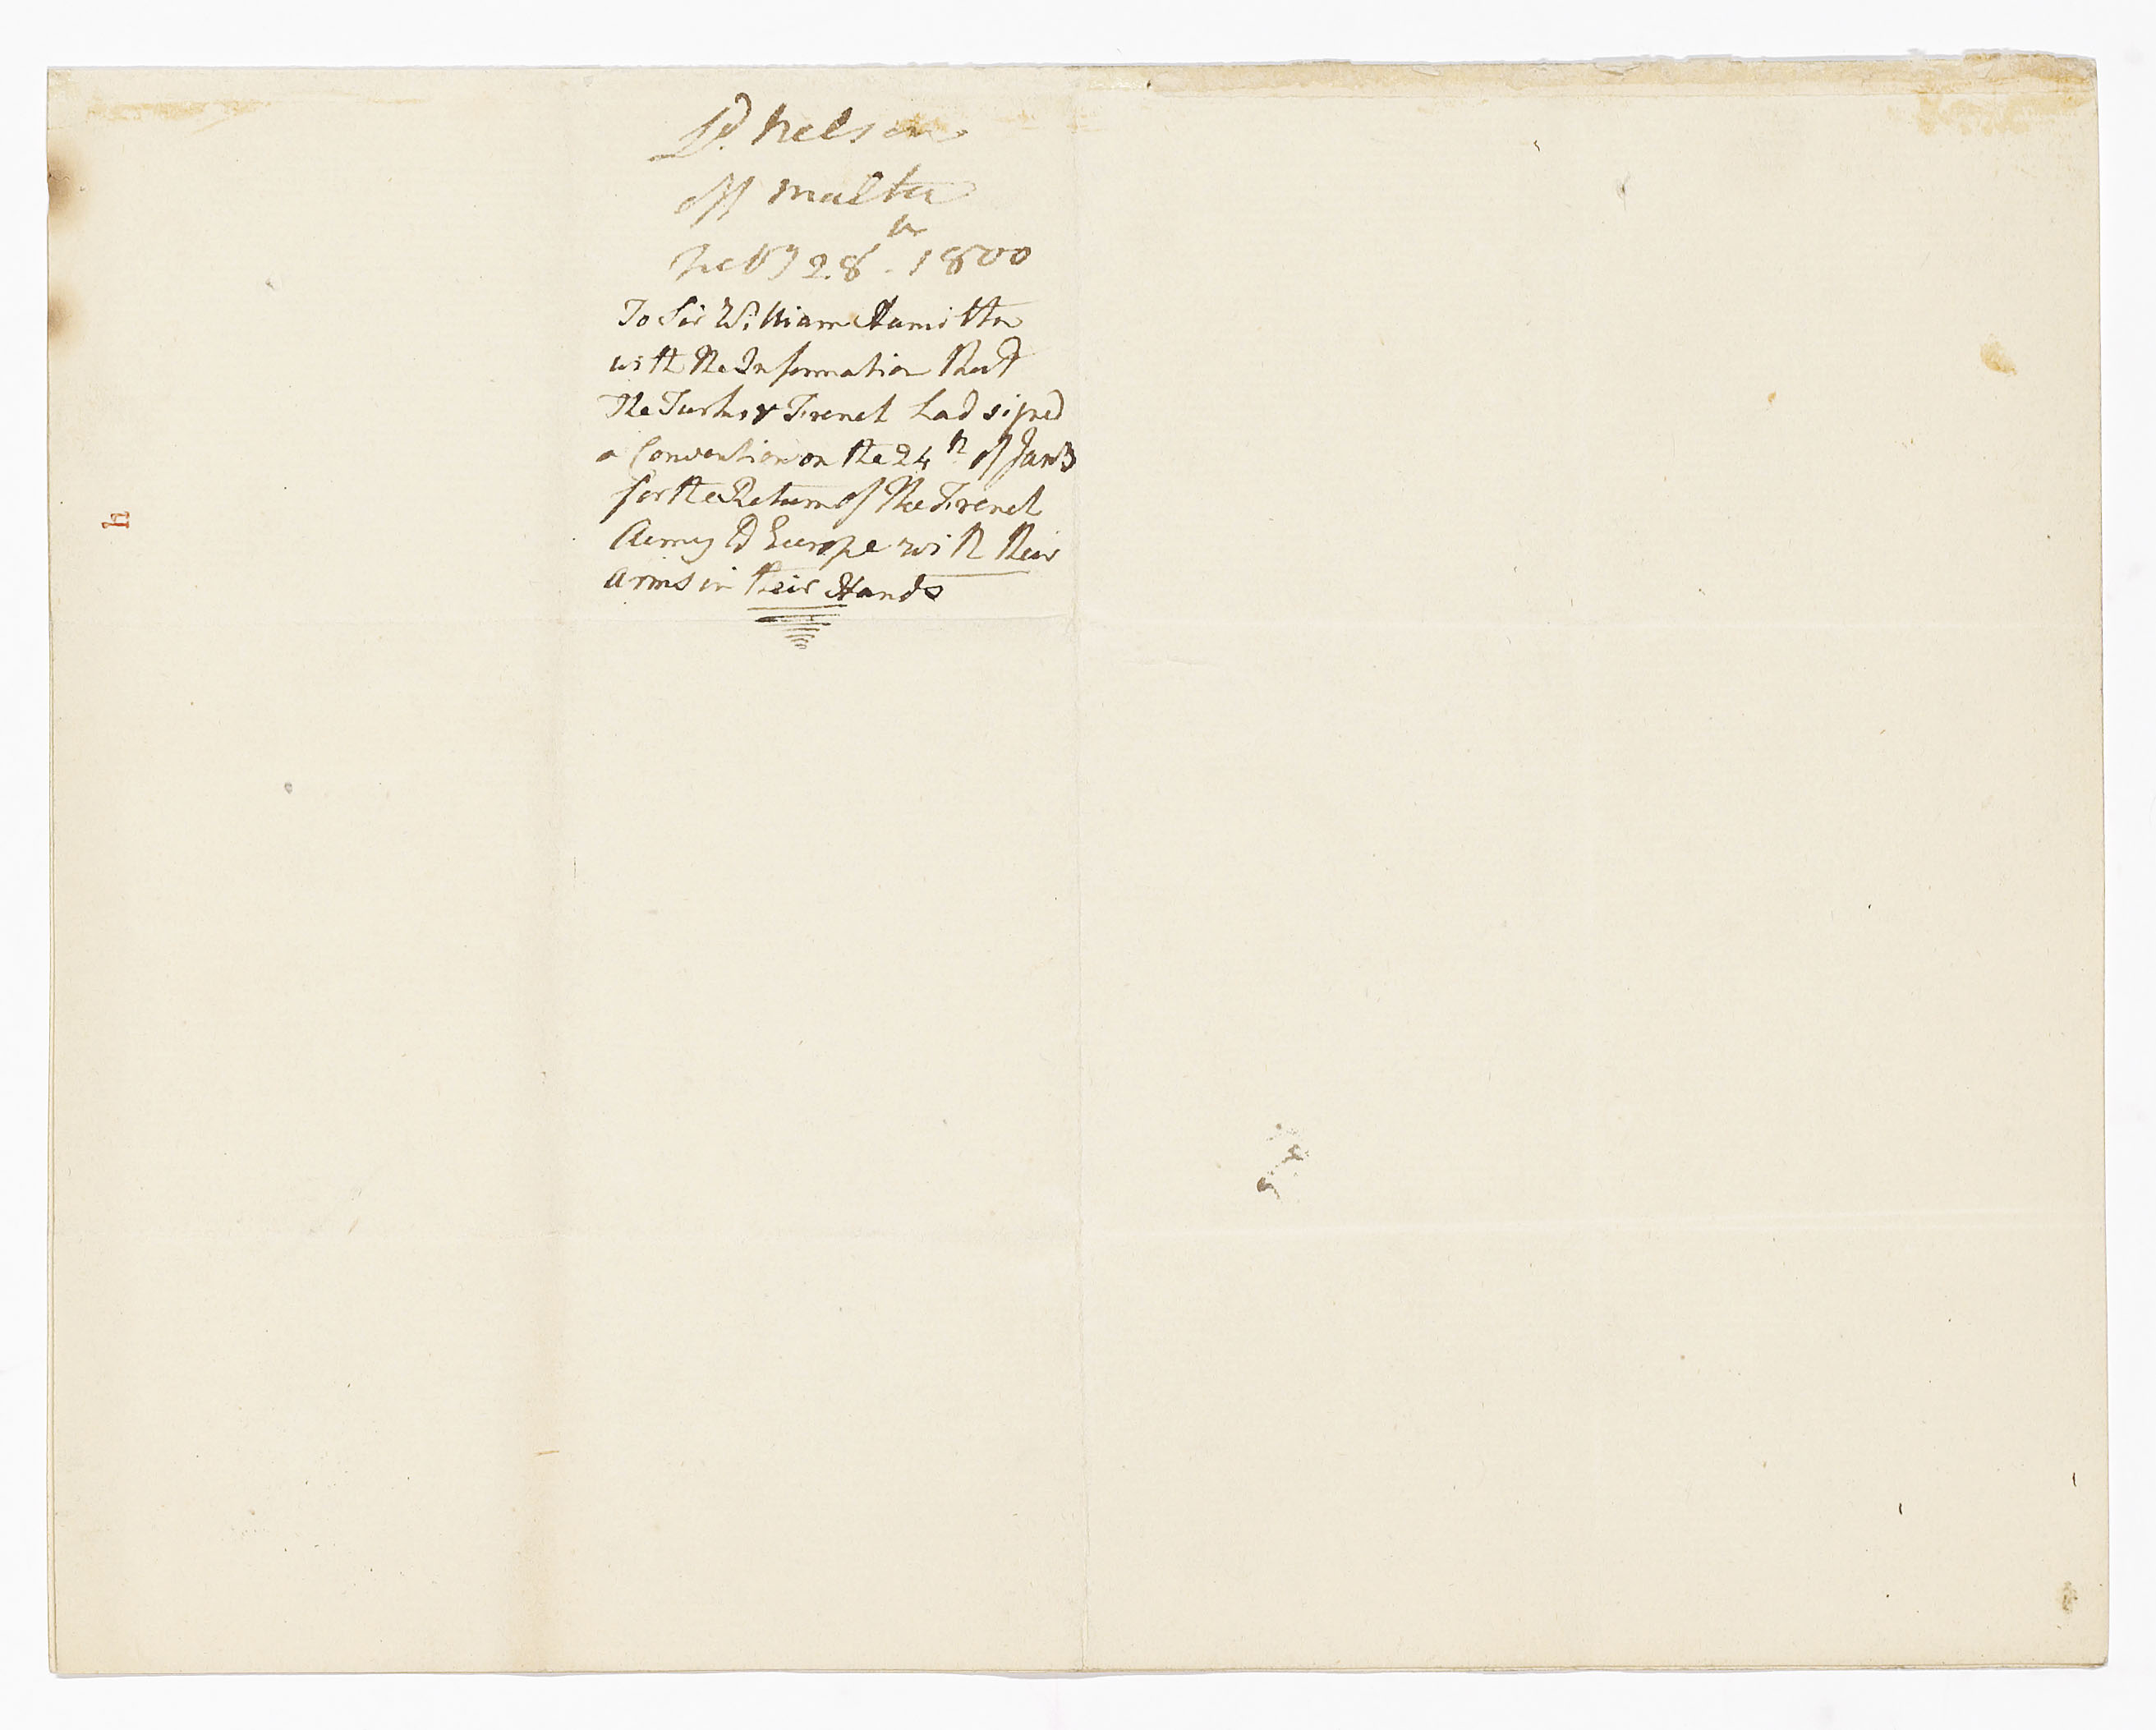 Ld. Nelson
off Malta
Feby 28th. 1800
To Sir William Hamilton
with the Information that
The Turks & French had signed
a Convention on the 24th of Jany
for the Return of the French
Army to Europe with their
Arms in their Hands
h